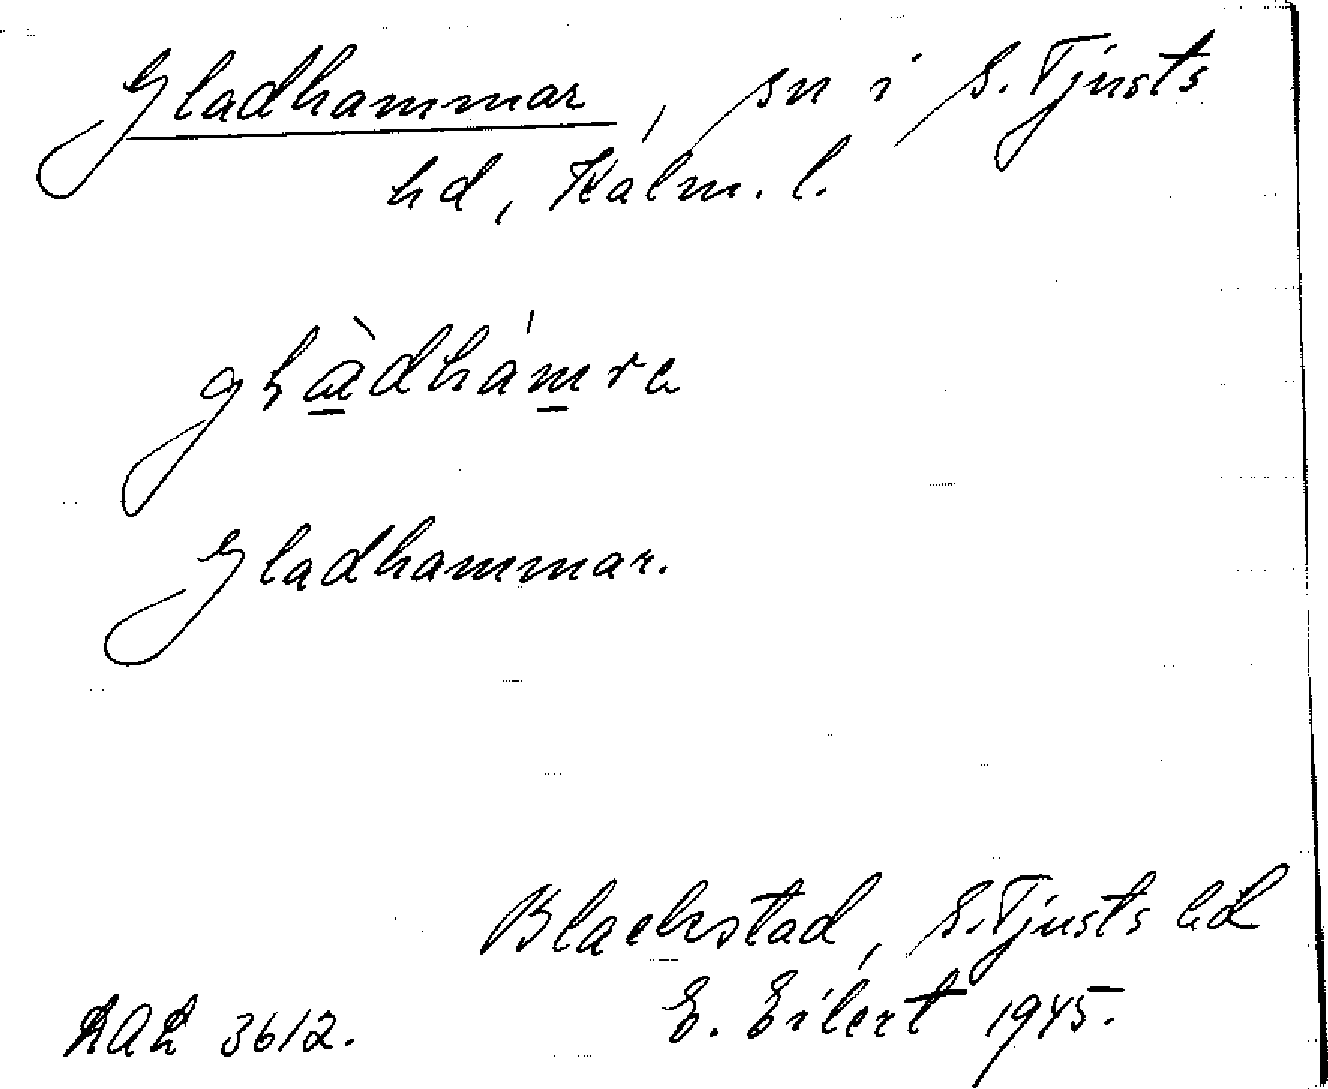 Gladhammar, sn i S. Tjusts
hd, Kalm. l.
Gladhammar.
Blackstad, S. Tjusts hd
E. Eilert 1945.
3612.